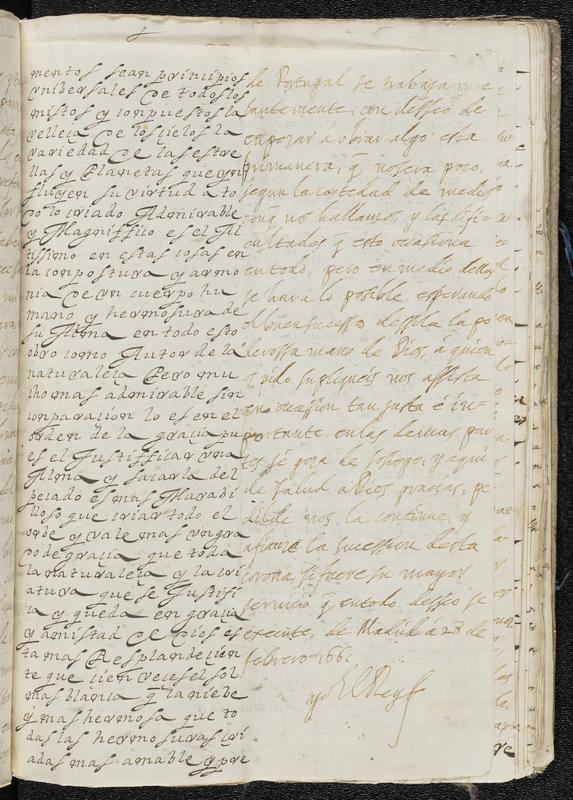 mentos sean principios
vnibersales de todos los
mistos y conpuestos la
velleça de los cielos la
variedad de las estre
llas y Planetas que yn
fluyen su virtud a to
do lo criado Admirable
y Magniffico es el Al
tissimo en estas cosas en
la conpostura y armo
nia de vn cuerpo hu
mano y hermosura de
su Alma en todo esto
obro como Autor de la
naturaleça Pero mu
cho mas admirable sin
conparacion lo es en el
orden de la gracia pu
es el Justifficar vna
Alma y sacarla del
pecado es mas Marabi
lloso que criar todo el
orbe y vale mas vn gra
do de gracia que toda
la naturaleça y la cri
atura que se Justifi
ca y queda en gracia
y amistad de Dios es
ta mas Resplandecien
te que cien veces el sol
mas blanca q la niebe
y mas hermosa que to
das las hermosuras cri
adas mas amable y pre
de Portugal se trabaja ince
santemente, con desseo de
empezar á obrar algo esta
primauera, q no sera poco,
segun la cortedad de medios
conq nos hallamos, y las difi-
cultades q esto ocasiona
en todo, pero en medio dellas
se hara lo posible, esperando
el buen sucesso desola la po
derossa mano de Dios, a quien
os pido supliqueis nos assista
en ocassion tan justa é in-
portante, en las demas par
tes se goza de sosiego, y aqui
de salud a Dios gracias, pe
dilde nos la continue, y
afiance la sucession desta
corona, si fuere su mayor
seruicio q en todo desseo se
execute, de Madrid á 28 de
febrero 1661
yo el Rey